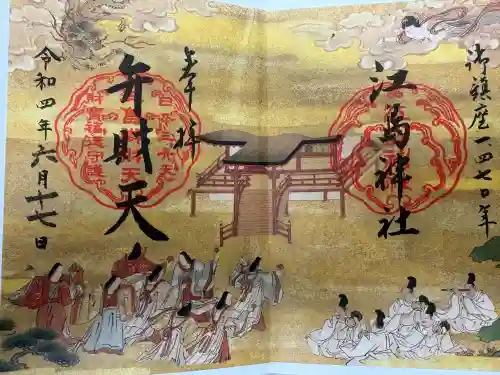 御鎮座一四七〇年
江島神社
奉拝
弁財天
令和四年六月十七日